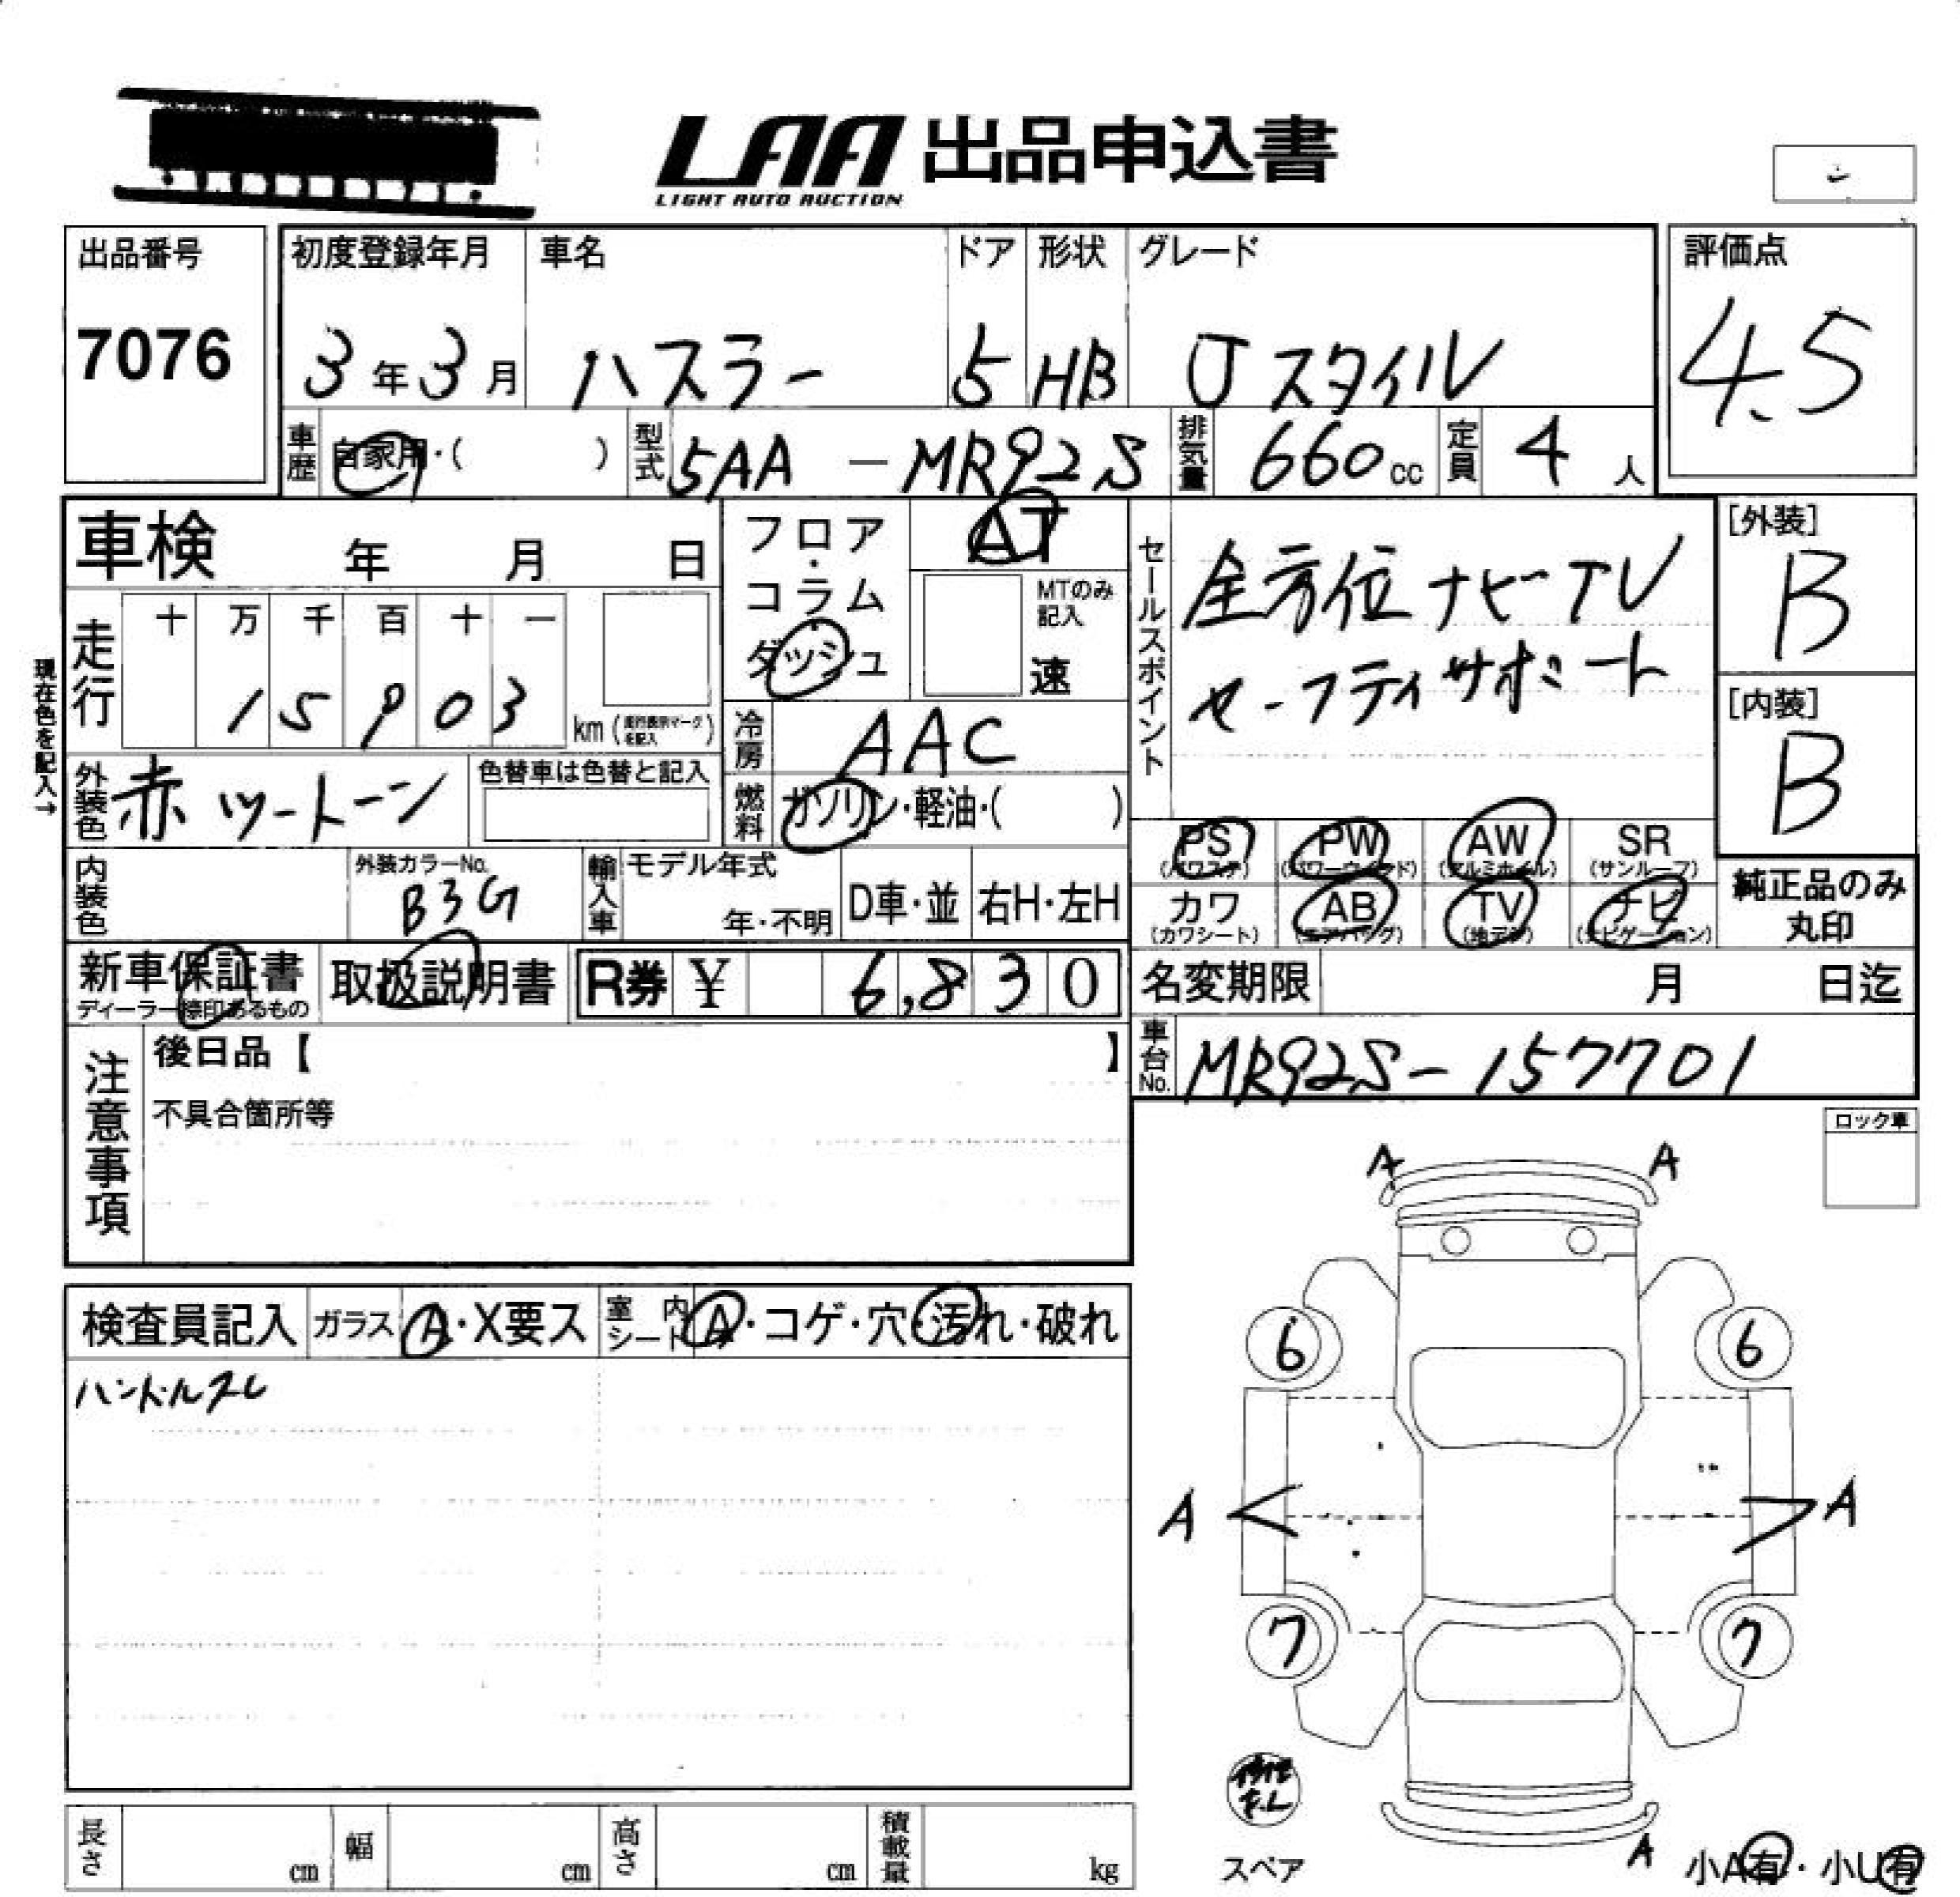 LAA 出品申込書
LIGHT AUTO AUCTION
出品番号
7076
初度登録年月
3年3月
車名
ハスラー
ドア
5
形状
HB
グレード
Jスタイル
評価点
4.5
車歴 自家用・( )
型式 5AA - MR92S
排気量 660cc
定員 4人
車検 年 月 日
フロア・コラム
ダッシュ
AT
MTのみ記入
速
セールスポイント
全方位 ナビ-TV
セーフティサポート
[外装]
B
[内装]
B
現在色を記入→
走行
十 万 千 百 十 一
1 5 9 0 3 km (走行表示マークを記入)
冷房 AAC
外装色 赤ツートーン
色替車は色替と記入
燃料 ガソリン・軽油・( )
PS (パワステ)
PW (パワーウインド)
AW (アルミホイル)
SR (サンルーフ)
カワ (カワシート)
AB (エアバッグ)
TV (地デジ)
ナビ (ナビゲーション)
純正品のみ丸印
内装色
外装カラーNo.
B3G
輸入車
モデル年式
年・不明
D車・並
右H・左H
新車保証書
ディーラー捺印あるもの
取扱説明書
R券 ¥ 6,830
名変期限 月 日迄
注意事項
後日品【 】
不具合箇所等
車台No. MR92S-157701
ロック車
検査員記入
ガラス A・X要ス
室内シート A・コゲ・穴・汚れ・破れ
ハンドルスレ
A A
6 6
A A
7 7
A
スペア
小A有・小U有
長さ cm
幅 cm
高さ cm
積載量 kg